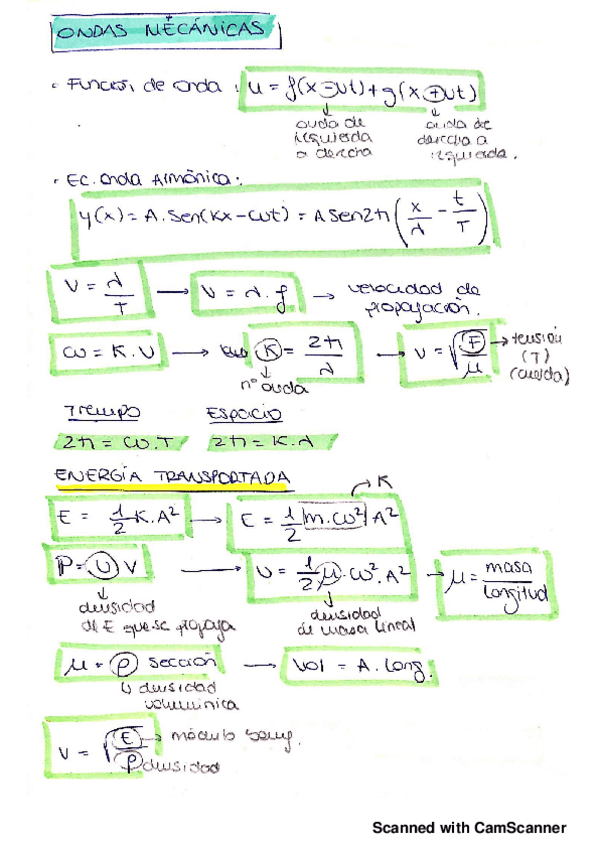 ONDAS MECÁNICAS
• Función de onda: u = f(x-vt)+g(x+vt)
↓ onda de izquierda a derecha
↓ onda de derecha a izquierda.
• EC. Onda Armónica:
y(x) = A.Sen(Kx-ωt) = A Sen2π(x/λ - t/T)
V = λ/T → V = λ.f → velocidad de propagación.
ω = K.V → K = 2π/λ → V = √(F/μ) → tensión (T) (cuerda)
↓ nº onda
Tiempo Espacio
2π = ω.T 2π = K.λ
ENERGÍA TRANSPORTADA
E = 1/2 K.A² → E = 1/2 m.ω² A² → K
P = U V → U = 1/2 μ.ω².A² → μ = masa/longitud
↓ densidad de E que se propaga
↓ densidad de masa lineal
μ = ρ sección → Vol = A.long.
↳ densidad volumínica
V = √(E/ρ) → módulo
densidad
Scanned with CamScanner